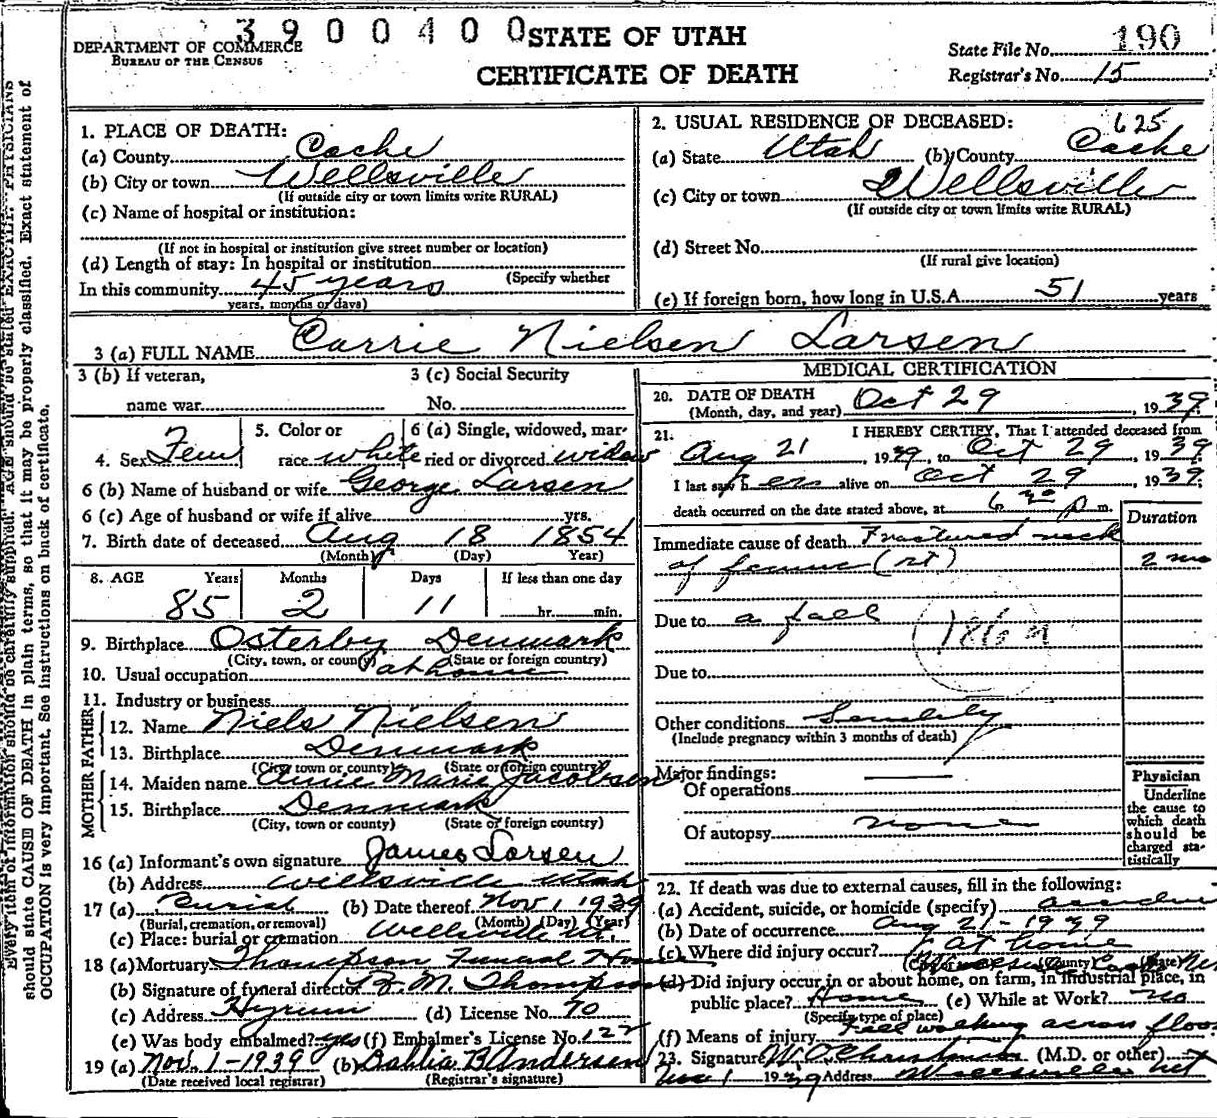 3900400
DEPARTMENT OF COMMERCE
BUREAU OF THE CENSUS
STATE OF UTAH
CERTIFICATE OF DEATH
State File No. 190
Registrar's No. 15
1. PLACE OF DEATH:
(a) County Cache
(b) City or town Wellsville
(If outside city or town limits write RURAL)
(c) Name of hospital or institution:
(If not in hospital or institution give street number or location)
(d) Length of stay: In hospital or institution
(Specify whether
In this community 45 years
years, months or days)
2. USUAL RESIDENCE OF DECEASED: 625
(a) State Utah (b) County Cache
(c) City or town Wellsville
(If outside city or town limits write RURAL)
(d) Street No.
(If rural give location)
(e) If foreign born, how long in U.S.A. 51 years
3 (a) FULL NAME Carrie Nielsen Larsen
3 (b) If veteran,
name war
3 (c) Social Security
No.
4. Sex Fem
5. Color or
race white
6 (a) Single, widowed, mar-
ried or divorced widow
6 (b) Name of husband or wife George Larsen
6 (c) Age of husband or wife if alive yrs.
7. Birth date of deceased Aug 18 1854
(Month) (Day) Year)
8. AGE Years Months Days If less than one day
85 2 11 hr. min.
9. Birthplace Osterby Denmark
(City, town, or county) (State or foreign country)
10. Usual occupation at home
11. Industry or business
FATHER
12. Name Niels Nielsen
13. Birthplace Denmark
(City town or county) (State or foreign country)
MOTHER
14. Maiden name Marie Jacobsen
15. Birthplace Denmark
(City, town or county) (State or foreign country)
16 (a) Informant's own signature James Larsen
(b) Address Wellsville Utah
17 (a) Burial (b) Date thereof Nov 1 1939
(Burial, cremation, or removal) (Month) (Day) (Year)
(c) Place: burial or cremation Wellsville Ut.
18 (a) Mortuary Thompson Funeral Home
(b) Signature of funeral director R. M. Thompson
(c) Address Hyrum (d) License No. 70
(e) Was body embalmed? yes (f) Embalmer's License No. 122
19 (a) Nov. 1-1939 (b) Dahlia B Andersen
(Date received local registrar) (Registrar's signature)
MEDICAL CERTIFICATION
20. DATE OF DEATH
(Month, day, and year) Oct 29, 1939
21. I HEREBY CERTIFY, That I attended deceased from
Aug 21, 1939, to Oct 29, 1939
I last saw her alive on Oct 29, 1939;
death occurred on the date stated above, at 6 30 p m.
Duration
Immediate cause of death Fractured neck
of femur (rt) 2 mo
Due to a fall
186a
Due to
Other conditions Senility
(Include pregnancy within 3 months of death)
Major findings:
Of operations
Of autopsy none
Physician
Underline
the cause to
which death
should be
charged sta-
tistically
22. If death was due to external causes, fill in the following:
(a) Accident, suicide, or homicide (specify) accident
(b) Date of occurrence Aug 21-1939
(c) Where did injury occur? at home
(County) (State)
(d) Did injury occur in or about home, on farm, in industrial place, in
public place? Home (e) While at Work? no
(Specify type of place)
(f) Means of injury Fell walking across floor
23. Signature (M.D. or other)
Nov 1 1939 Address Wellsville Ut
should state CAUSE OF DEATH in plain terms, so that it may be properly classified. Exact statement of
OCCUPATION is very important. See instructions on back of certificate.